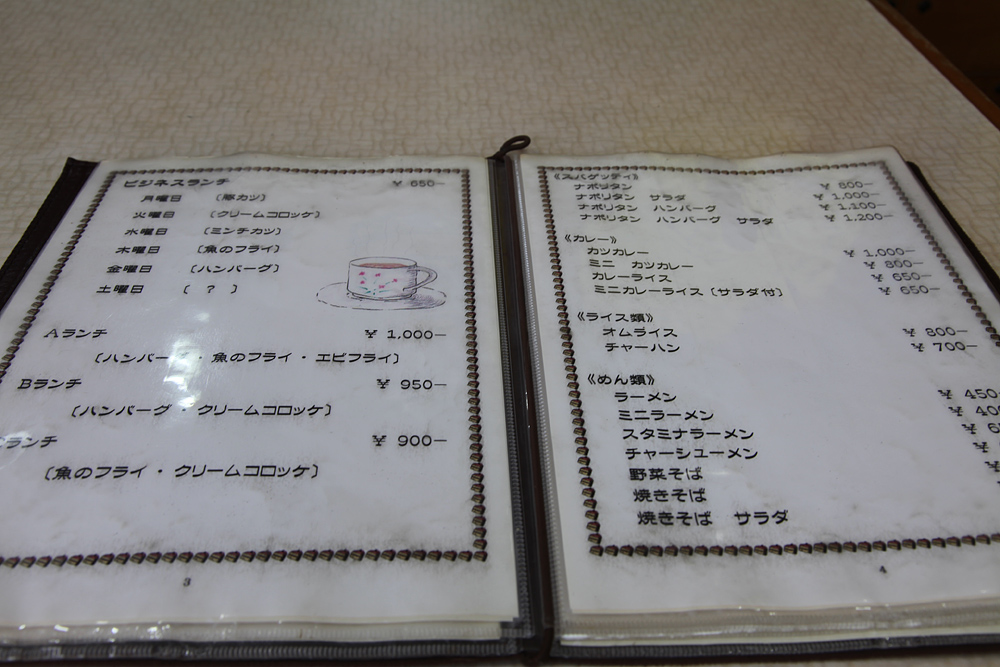 ビジネスランチ ￥ 650―
月曜日 〔豚カツ〕
火曜日 〔クリームコロッケ〕
水曜日 〔ミンチカツ〕
木曜日 〔魚のフライ〕
金曜日 〔ハンバーグ〕
土曜日 〔 ? 〕
Aランチ ￥ 1,000―
〔ハンバーグ・魚のフライ・エビフライ〕
Bランチ ￥ 950―
〔ハンバーグ・クリームコロッケ〕
ランチ ￥ 900―
〔魚のフライ・クリームコロッケ〕
3
《スパゲッティ》
ナポリタン ￥ 800―
ナポリタン サラダ ￥ 1,000―
ナポリタン ハンバーグ ￥ 1,100―
ナポリタン ハンバーグ サラダ ￥ 1,200―
《カレー》
カツカレー ￥ 1,000―
ミニ カツカレー ￥ 850―
カレーライス ￥ 650―
ミニカレーライス〔サラダ付〕 ￥ 650―
《ライス類》
オムライス ￥ 800―
チャーハン ￥ 700―
《めん類》
ラーメン ￥ 450
ミニラーメン ￥ 40
スタミナラーメン ￥ 6
チャーシューメン ￥
野菜そば ￥
焼きそば
焼きそば サラダ
4